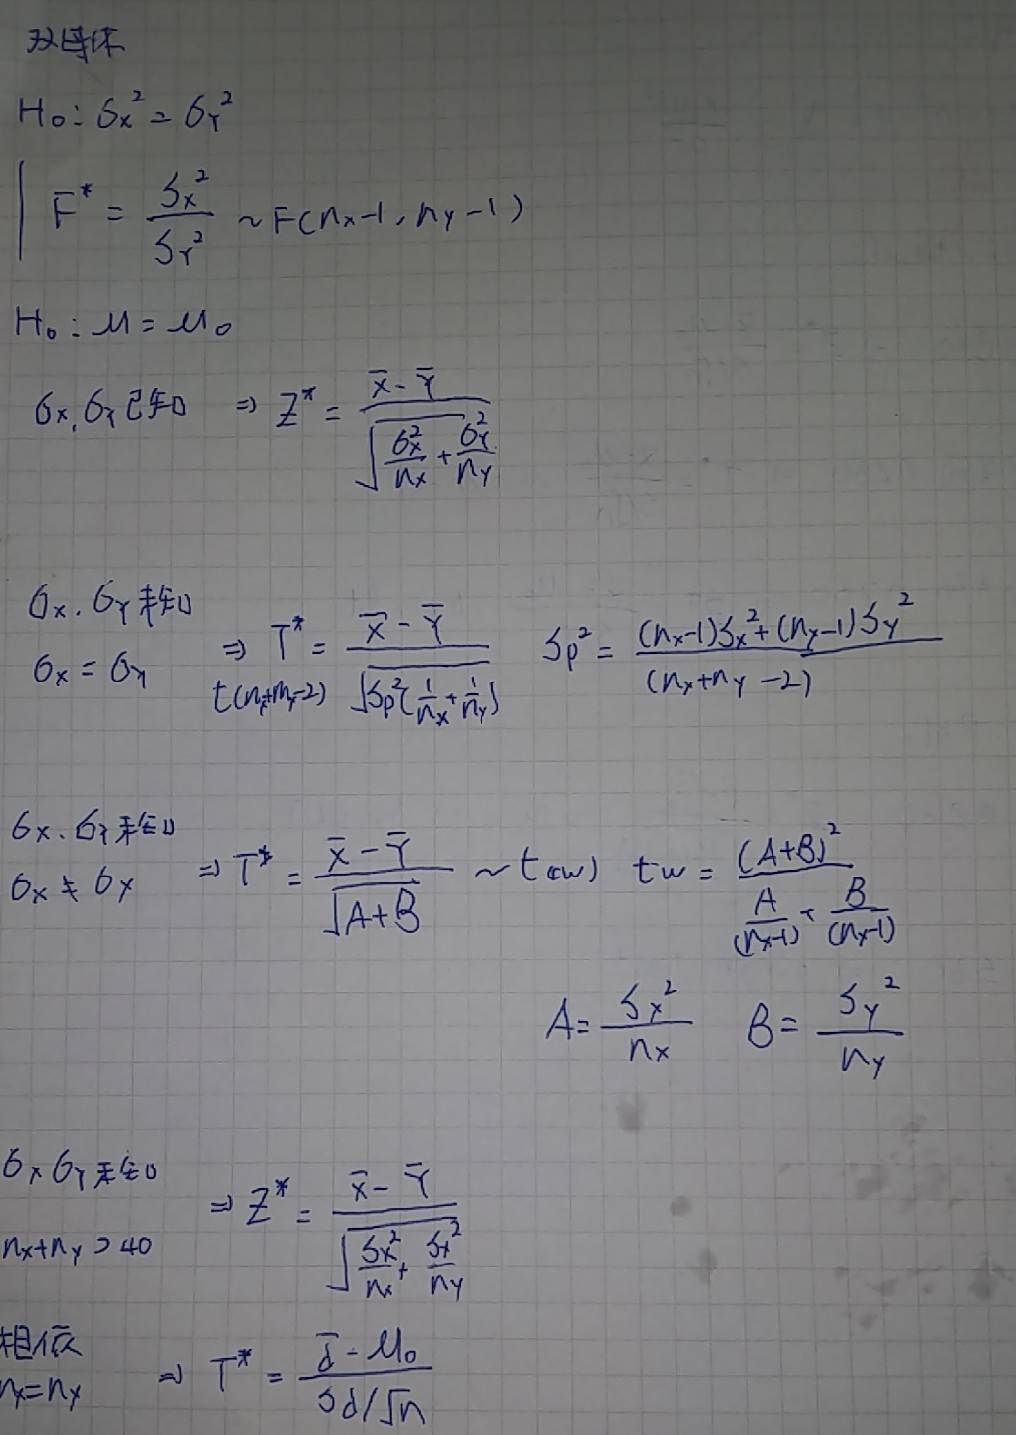 双母体
H₀: σx² = σY²
F* = Sx² / SY² ~ F(nx-1, ny-1)
H₀: μ = μ₀
σx, σY已知 ⇒ Z* = (x̄ - Ȳ) / √(σx²/nx + σY²/ny)
σx, σY未知
σx = σY ⇒ T* = (x̄ - Ȳ) / √(Sp²(1/nx + 1/ny)) Sp² = ((nx-1)Sx² + (ny-1)Sy²) / (nx+ny-2)
t(nx+ny-2)
σx, σY未知
σx ≠ σY ⇒ T* = (x̄ - Ȳ) / √(A+B) ~ t(w) tw = (A+B)² / (A/(nx-1) + B/(ny-1))
A = Sx²/nx B = Sy²/ny
σx σY未知
nx+ny > 40 ⇒ Z* = (x̄ - Ȳ) / √(Sx²/nx + Sx²/ny)
相依
nx=ny ⇒ T* = (d̄ - μ₀) / (Sd/√n)